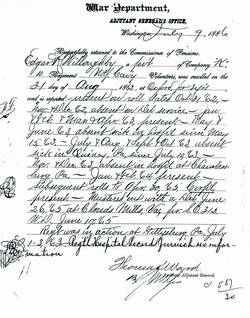 War Department,
ADJUTANT GENERAL'S OFFICE,
Washington, July 9, 1886
Respectfully returned to the Commissioner of Pensions.
Edgar R. Willoughby, a of Company K,
10 Regiment Cav'y Volunteers, was enrolled on the
21 day of Aug, 1862, at
and is reported present on roll dated Oct 31, '62,
Nov & Dec 62 absent
Feb & Mar & Apr 63 present - May &
June 63 absent sick in hospl since May
15 63 - July & Aug & Sept & Oct 63 absent
sick in Quincy, Pa since July 13 63 -
Nov & Dec 63 absent in hospl at Chambers-
burg Pa - Jan & Feb 64 present -
subsequent rolls to Apr 30, 65
present - Mustered out with a Det June
26, 65 at Clouds Mills, Va, per S.O. 312
W.D. June 17, 65
Reg't was in action at Gettysburg Pa July
1-3, 63 Reg'tl Hospital Record furnish no infor-
mation
Thomas Ward
Assistant Adjutant General.